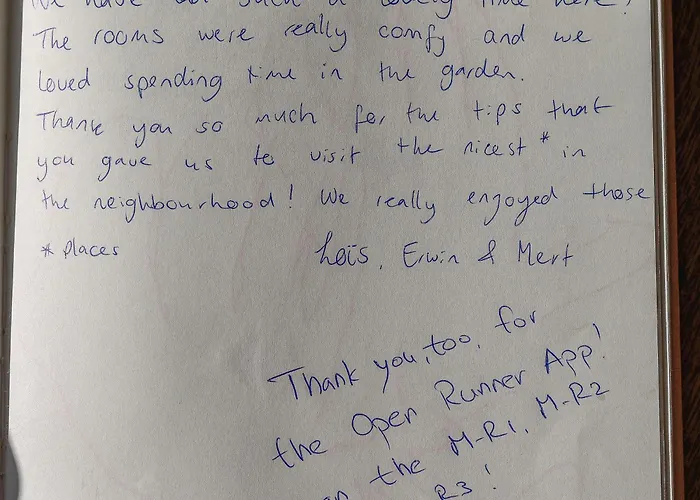 We have had such a lovely time here!
The rooms were really comfy and we
loved spending time in the garden.
Thank you so much for the tips that
you gave us to visit the nicest * in
the neighbourhood! We really engoyed those
* places
Loïs, Erwin & Mert
Thank you, too, for
the Open Runner App!
the M-R1, M-R2
R3!